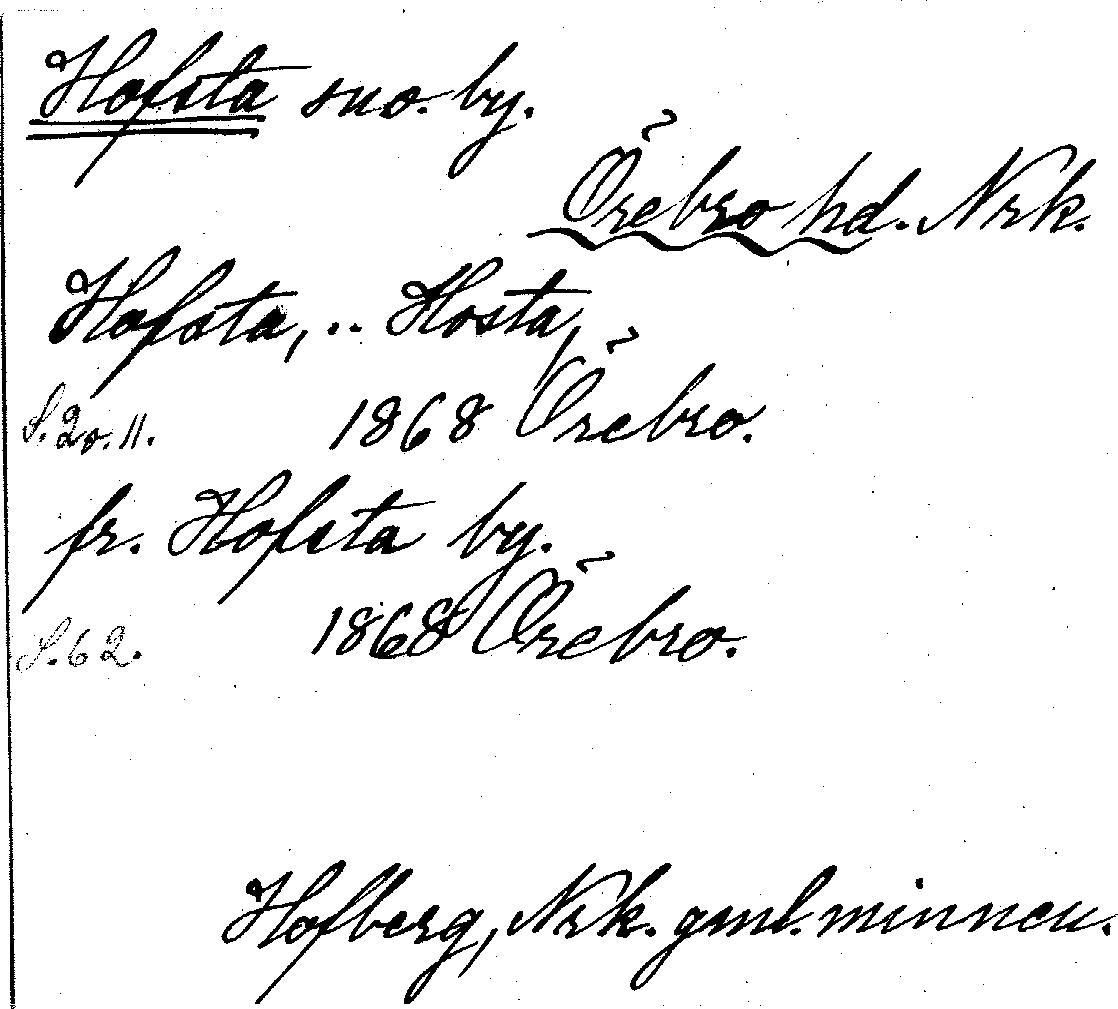 Hofsta sno. by.
Örebro hd. Nrk.
Hofsta, .. Hosta,
S. 20. 11. 1868 Örebro.
fr. Hofsta by.
S. 62. 1868 Örebro.
Hofberg, Nrk. gml. minnen.